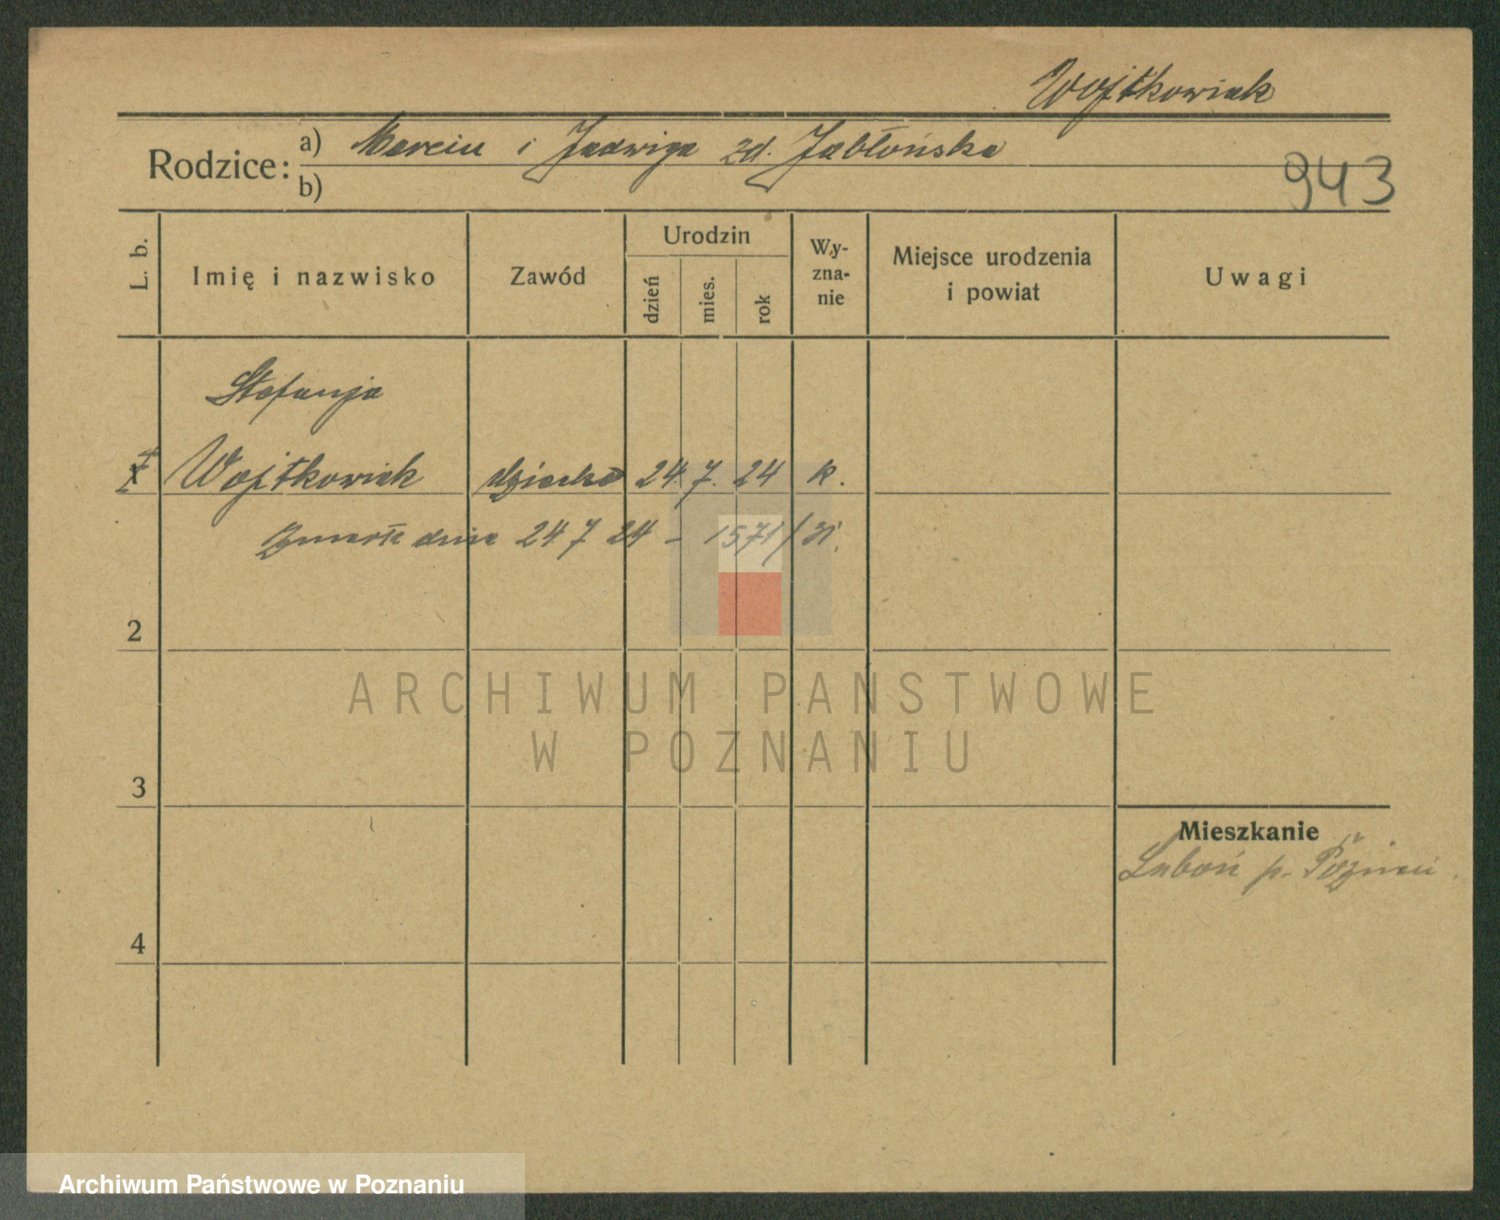 Wojtkowiak
Rodzice: a) Marcin i Jadwiga zd. Jabłońska
b)
943
L. b.
Imię i nazwisko
Zawód
Urodzin
dzień
mies.
rok
Wy-
zna-
nie
Miejsce urodzenia
i powiat
Uwagi
Stefanja
Wojtkowiak dziecko 24. 7. 24 k.
Zmarła dnia 24 7 24 - 1571/
2
3
4
Mieszkanie
Luboń p. Poznań
ARCHIWUM PAŃSTWOWE
W POZNANIU
Archiwum Państwowe w Poznaniu